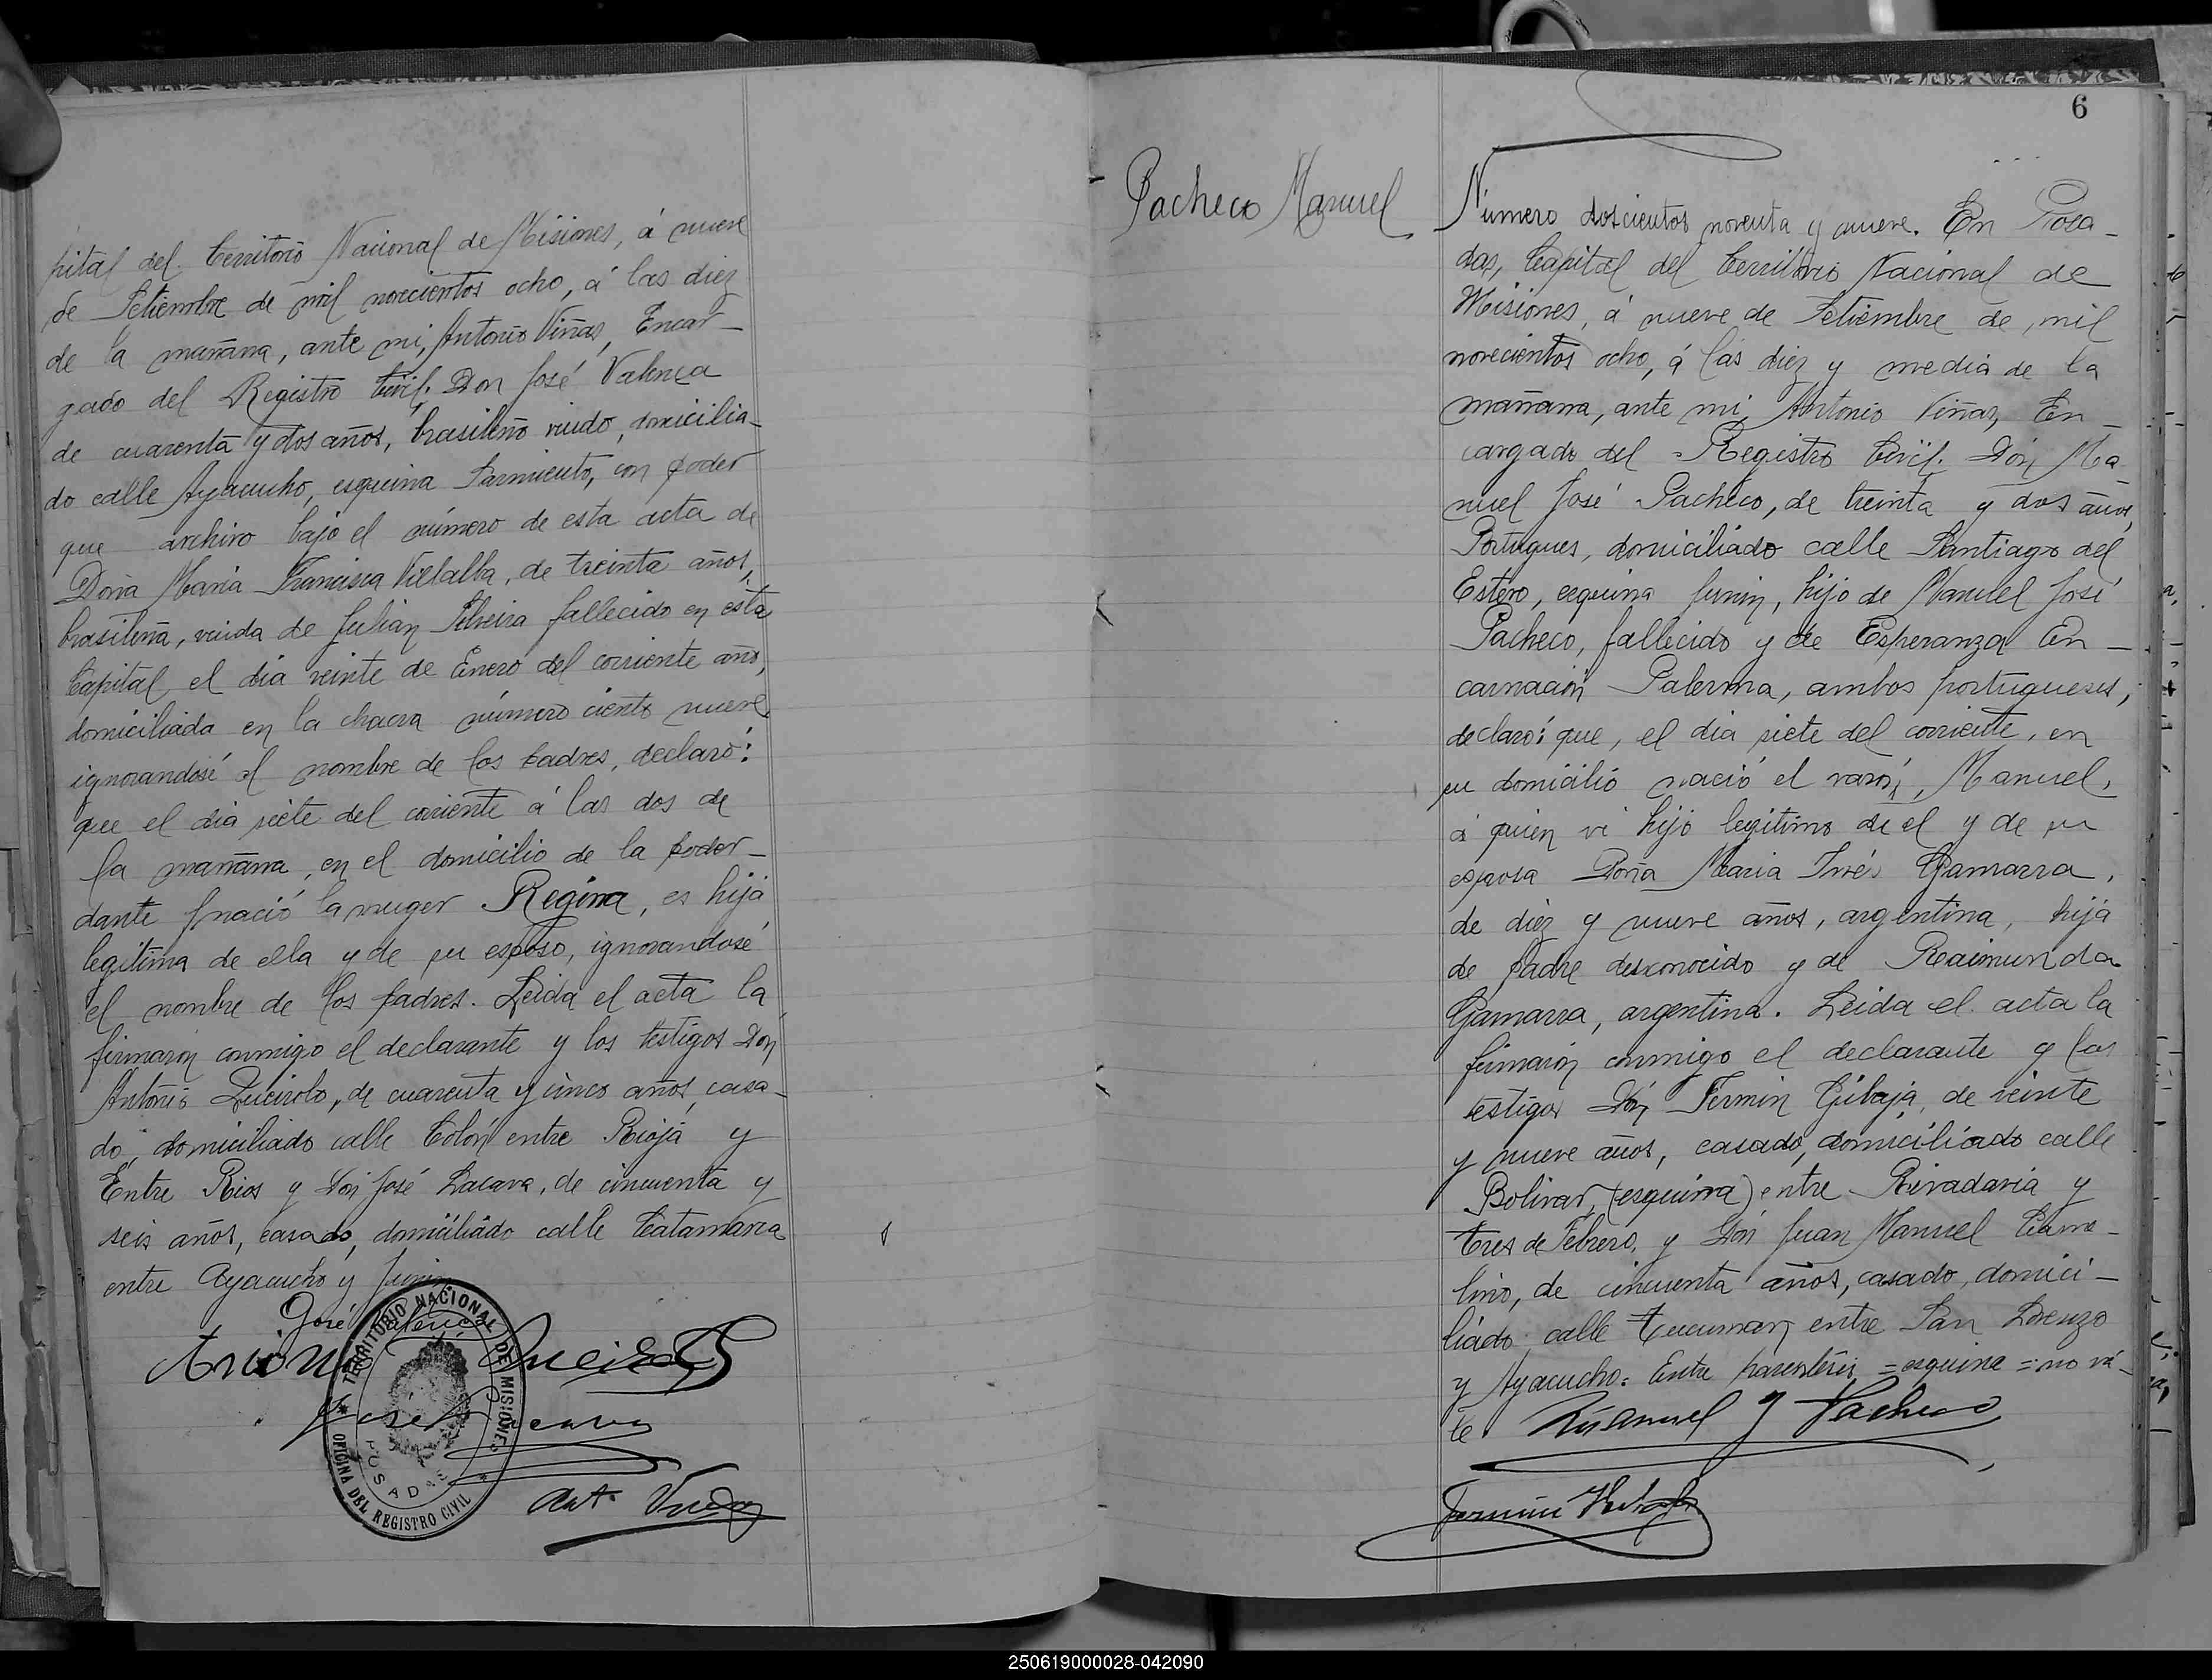 pital del Territorio Nacional de Misiones, á nueve
de Setiembre de mil novecientos ocho, á las diez
de la mañana, ante mi, Antonio Viñas, Encar-
gado del Registro Civil. Don José Valença
de cuarenta y dos años, brasileño viudo, domicilia-
do calle Ayacucho, esquina Sarmiento, con poder
que archivo bajo el número de esta acta de
Doña Maria Francisca Villalba, de treinta años,
brasileña, viuda de Julian Silveira fallecido en esta
Capital, el dia veinte de Enero del corriente año,
domiciliada en la chacra número ciento nueve
ignorandosé el nombre de los padres, declaró:
que el dia siete del corriente á las dos de
la mañana, en el domicilio de la poder-
dante nació la muger Regina, es hija
legitima de ella y de su esposo, ignorandosé
el nombre de los padres. Leida el acta la
firmarón conmigo el declarante y los testigos Don
Antonio Queirolo, de cuarenta y cinco años, casa-
do, domiciliado calle Colón entre Rioja y
Entre Rios y Don José Lacava, de cincuenta y
seis años, casado, domiciliado calle Catamarca
entre Ayacucho y Junin
José Valença
Antonio Queirolo
José Lacava
Ant. Viñas
TERRITORIO NACIONAL DE MISIONES
POSADAS
OFICINA DEL REGISTRO CIVIL
6
Pacheco Manuel
Número doscientos noventa y nueve. En Posa-
das, Capital del Territorio Nacional de
Misiones, á nueve de Setiembre de mil
novecientos ocho, á las diez y media de la
mañana, ante mi, Antonio Viñas, En-
cargado del Registro Civil. Don Ma-
nuel José Pacheco, de treinta y dos años,
Portugues, domiciliado calle Santiago del
Estero, esquina Junin, hijo de Manuel José
Pacheco, fallecido y de Esperanza En-
carnación Palerma, ambos portugueses,
declaró: que, el dia siete del corriente, en
su domicilio nació el varón, Manuel,
á quien vi hijo legitimo de el y de su
esposa Doña Maria Inés Gamarra,
de diez y nueve años, argentina, hija
de padre desconocido y de Raimunda
Gamarra, argentina. Leida el acta la
firmarón conmigo el declarante y los
testigos Don Fermin Gibaja, de veinte
y nueve años, casado, domiciliado calle
Bolivar, (esquina) entre Rivadavia y
Tres de Febrero, y Don Juan Manuel Came-
lino, de cincuenta años, casado, domici-
liado calle Tucuman entre San Lorenzo
y Ayacucho. Entre parentésis =esquina= no vá-
le Manuel J Pacheco
Fermin Gibaja
250619000028-042090